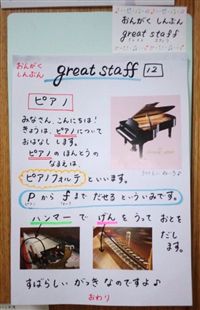 おんがくしんぶん
great staff
おんがく
しんぶん
great staff 12
ピアノ
みなさん、こんにちは!
きょうは、ピアノについて
おはなしします。
ピアノのほんとうの
なまえは、
ピアノフォルテといいます。
PからfまでだせるといういみでS。
ハンマーでげんをうっておとを
だし
ます。
すばらしいがっきなのですよ♪
おわり